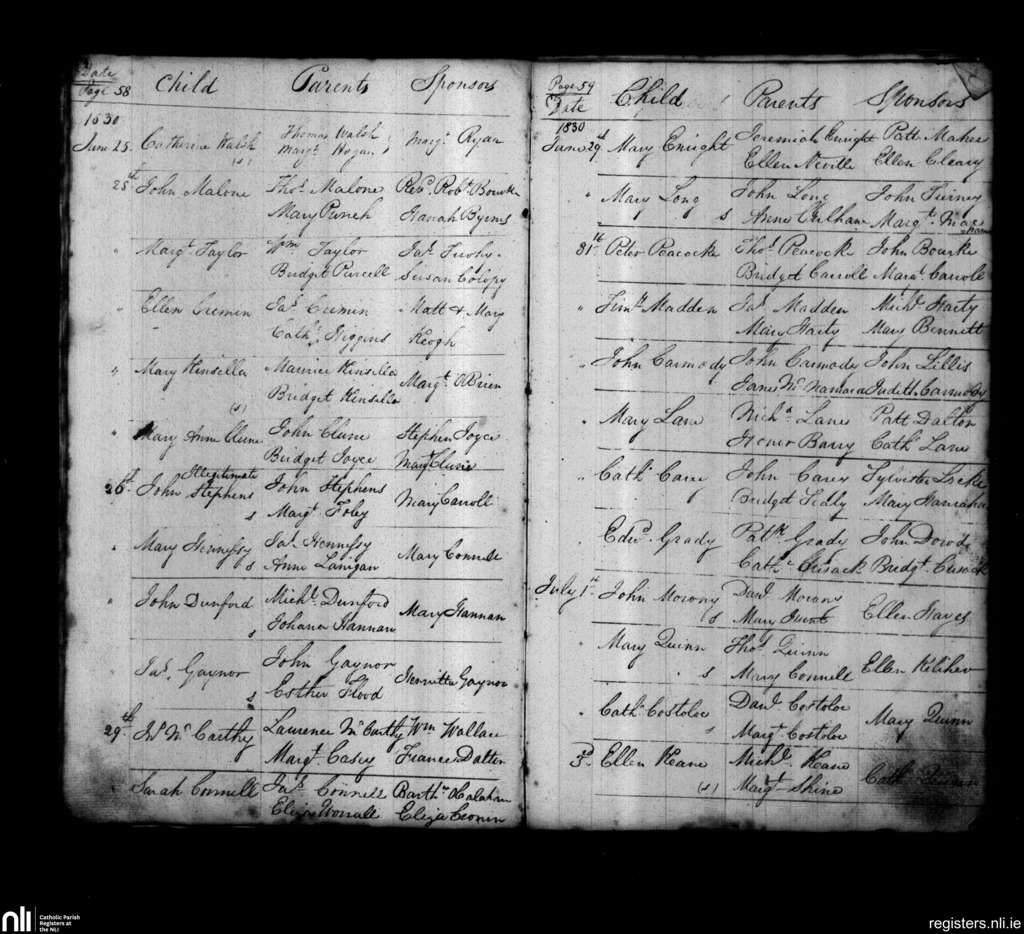 Date
Page 58 Child Parents Sponsors
1830
June 25. Catherine Walsh Thomas Walsh Margt. Ryan
(s) Margt. Hogan
25th John Malone Thos. Malone Revd. Robt. Bourke
Mary Punch Hanah Byrns
" Margt. Taylor Wm. Taylor Jas.
Bridget Purcell Susan Colopy
" Ellen Cremen Jas. Cremen Matt & Mary
Cath. Higgins Keogh
" Mary Kinsella Maurice Kinsella Margt. OBrien
(s) Bridget Kinsella
" Mary Anne Clune John Clune Stephen Joyce
Bridget Joyce Mary Clune
Illegitimate
26th John Stephens John Stephens Mary Carroll
s Margt. Foley
" Mary Hennessy Jas. Hennessy Mary Connell
s Anne Lanigan
" John Dunford Michl. Dunford Mary Hannan
s Johana Hannan
Jas. Gaynor John Gaynor Henritta Gaynor
s Esther Flood
29th Jno. McCarthy Laurence McCarthy Wm Wallace
Margt. Casey Frances Dalton
Sarah Connell Jas. Connell Barthw.
Eliza Worrall Eliza Cronin
Page 59
Date Child Parents Sponsors
1830
June 29th Mary Enright Jeremiah Enright Patt Maher
Ellen Neville Ellen Cleary
" Mary Long John Long John Tierney
s Margt.
31st Peter Peacocke Thos. Peacocke John Bourke
Bridget Carroll Margt. Carroll
" Timy. Madden Jas. Madden Michl. Harty
Mary Harty Mary Bennett
" John Carmody John Carmody John Lillis
Jane McNamara Judith Carmody
" Mary Lane Michl. Lane Patt Dalton
Honor Barry Cath. Lane
" Cath. Carey John Carey Sylvester Locke
Bridget Healy Mary Hanrahan
Edwd. Grady Patk. Grady John Dowd
Cath. Cusack Bridgt. Cusack
July 1st John Morony Danl. Morony Ellen Hayes
(s Mary Hunt
" Mary Quinn Thos. Quinn Ellen Kiliher
s Mary Connell
" Cath. Costoloe Danl. Costoloe Mary Quinn
s Margt. Costoloe
3d Ellen Keane Michl. Keane Cath.
(s) Margt. Shine
nli Catholic Parish
Registers at
the NLI
registers.nli.ie